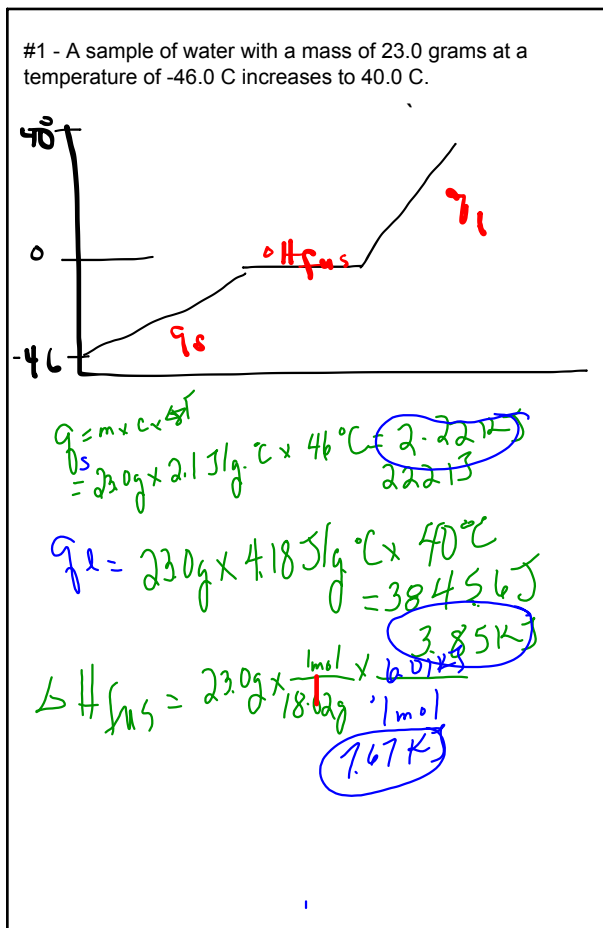 #1 - A sample of water with a mass of 23.0 grams at a
temperature of -46.0 C increases to 40.0 C.
40°
0
-46
qs
ΔHfus
ql
qs = m x c x ΔT
= 23.0g x 2.1 J/g·°C x 46°C = 2.221kJ
2221J
ql = 23.0g x 4.18 J/g °C x 40°C
= 3845.6J
3.85KJ
ΔHfus = 23.0g x 1mol/18.02g x 6.01KJ/1mol
7.67 KJ